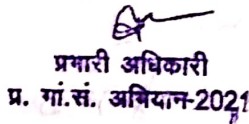 प्रभारी अधिकारी
प्र. गां.सं. अभियान-2021